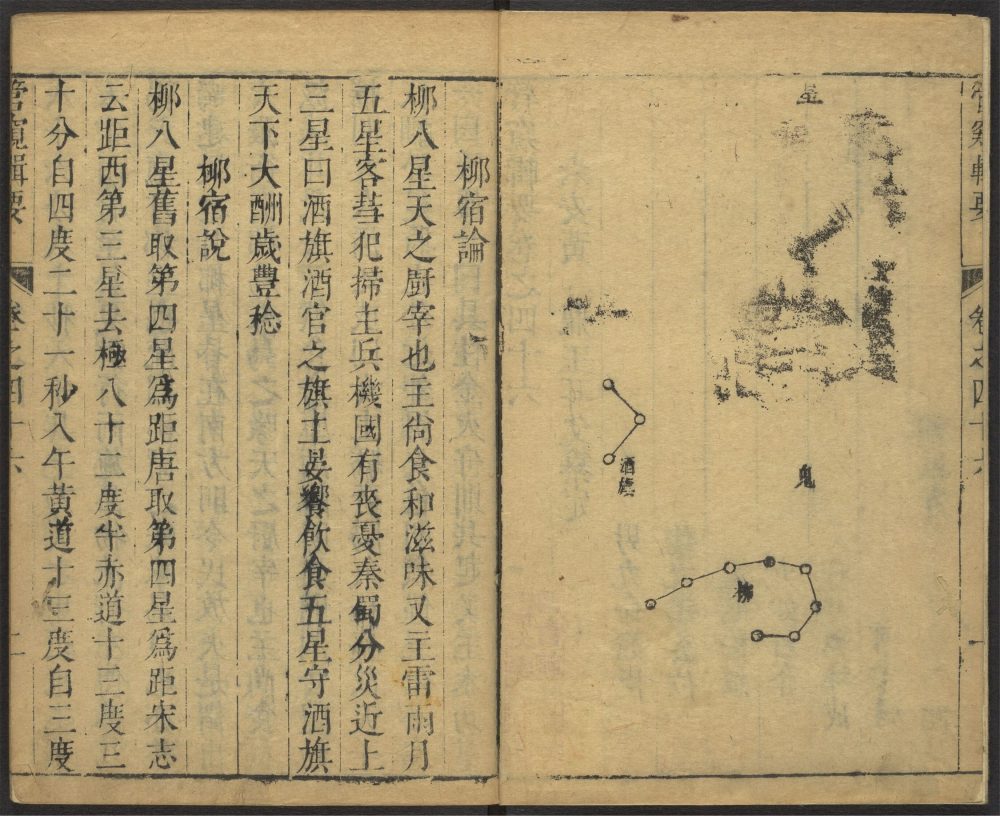 管窺輯要
卷之四十六
一
星
鬼
酒旗
柳
柳宿論
柳八星天之厨宰也主尚食和滋味又主雷雨月
五星客彗犯掃主兵機國有喪憂秦蜀分災近上
三星曰酒旗酒官之旗主宴饗飲食五星守酒旗
天下大酺歲豐稔
柳宿說
柳八星舊取第四星爲距唐取第四星爲距宋志
云距西第三星去極八十二度半赤道十三度三
十分自四度二十一秒入午黃道十三度自三度
管窺輯要
卷之四十六
二